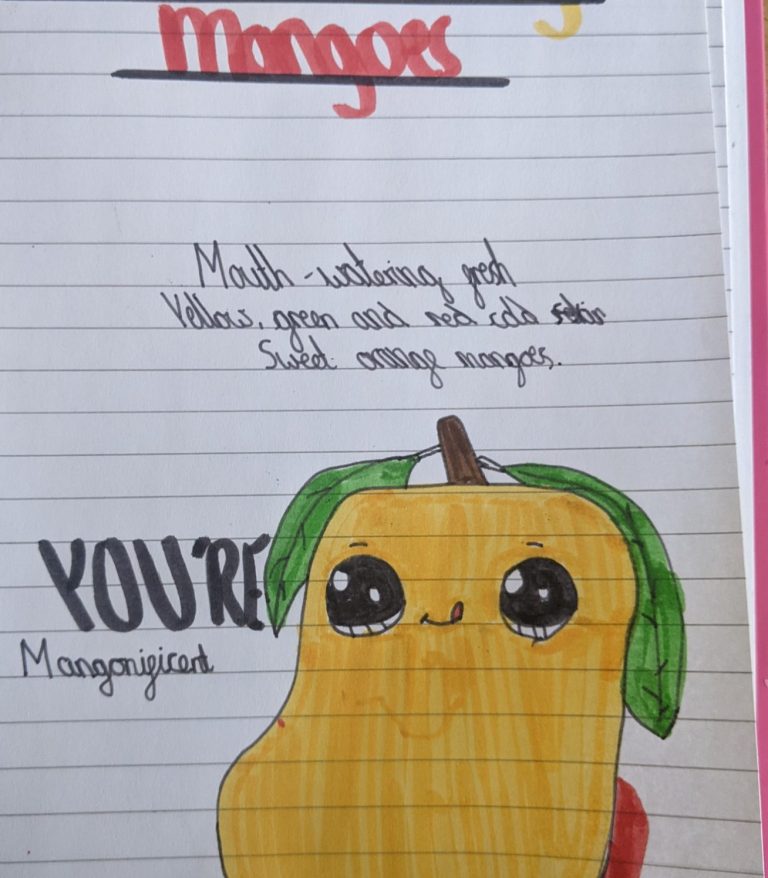 Mangoes
Mouth-watering, fresh
Yellow, green and red
Sweet orange mangoes.
YOU'RE
Mangonificent